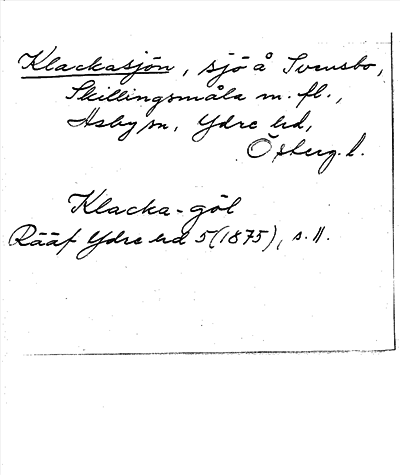 Klackasjön, sjö å Svensbo,
Skillingsmåla m. fl.,
Asby sn, Ydre hd,
Österg. l.
Klacka-göl
Rääf Ydre hd 5 (1875), s. 11.